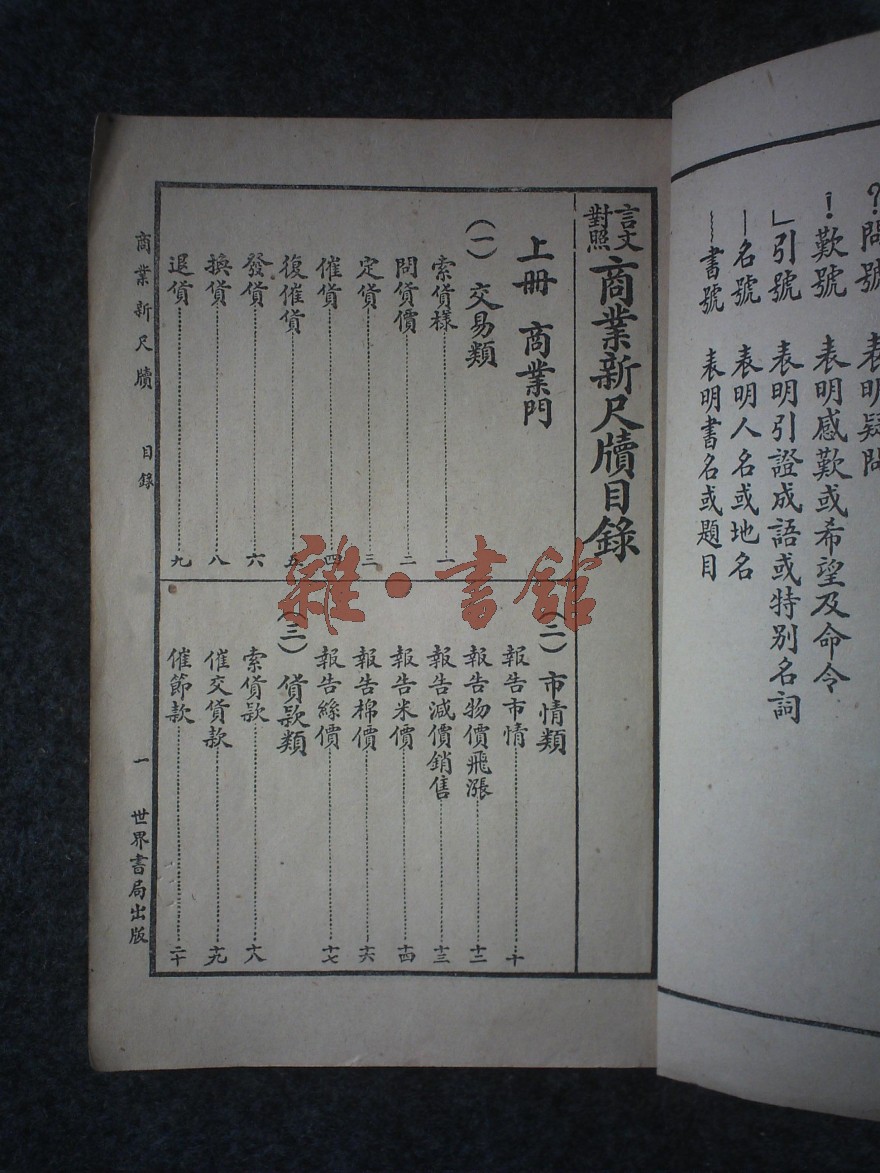 ?問號 表明疑問
!歎號 表明感歎或希望及命令
」引號 表明引證成語或特別名詞
—名號 表明人名或地名
~~~書號 表明書名或題目
言文對照 商業新尺牘目錄
上冊 商業門
(一) 交易類
索貨樣 一
問貨價 二
定貨 三
催貨 四
復催貨 五
發貨 六
換貨 八
退貨 九
(二) 市情類
報告市情 十
報告物價飛漲 十二
報告減價銷售 十三
報告米價 十四
報告棉價 十六
報告絲價 十七
(三) 貨款類
索貨款 十八
催交貨款 十九
催節款 二十
商業新尺牘 目錄 一 世界書局出版
雜·書館